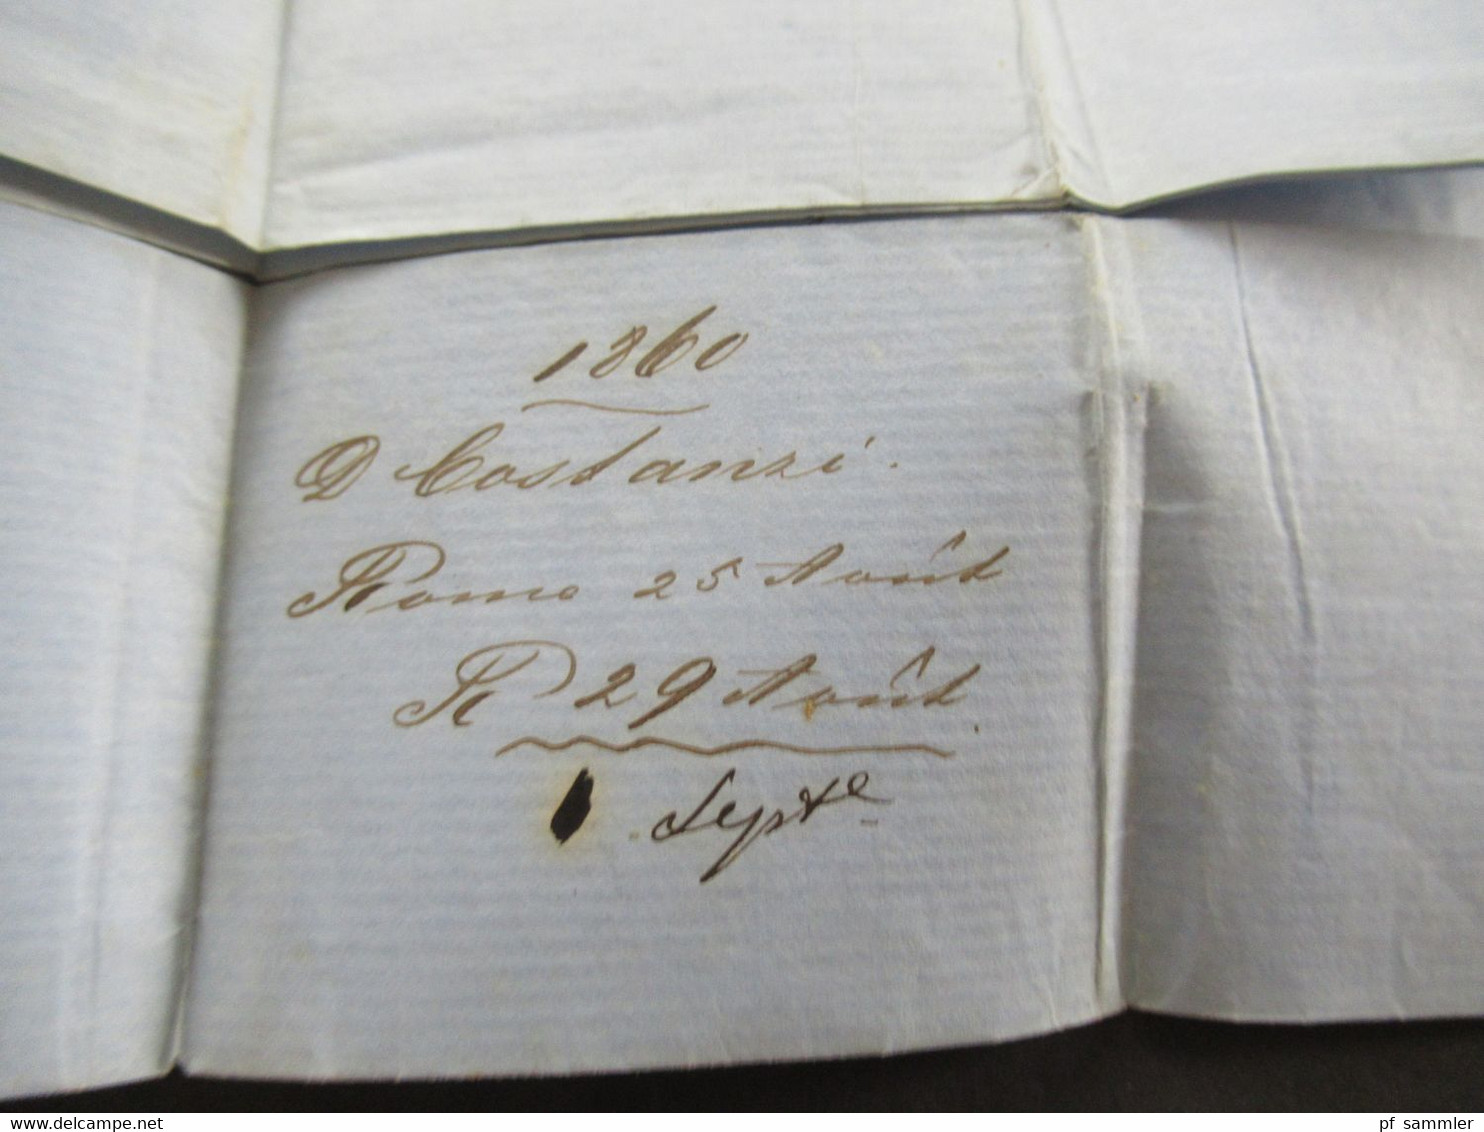 1860
D Costanzi.
Rome 25 Août
R 29 Août.
Septe
www.delcampe.net
pf_sammler